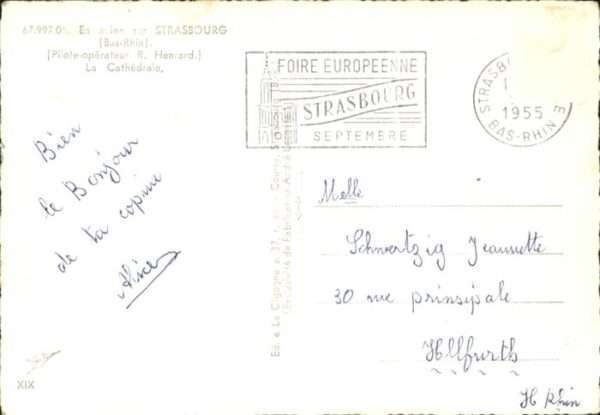 67.997.05. En avion sur STRASBOURG
(Bas-Rhin).
(Pilote-opérateur R. Henrard.)
La Cathédrale.
FOIRE EUROPEENNE
STRASBOURG
SEPTEMBRE
STRASB
1955
BAS-RHIN
Bien
le Bonjour
de ta copine
Alice
Ed. e La Cigogne
XIX
Melle
Schwertzig Jeannette
30 rue prinsipale
Illfurth
H Rhin